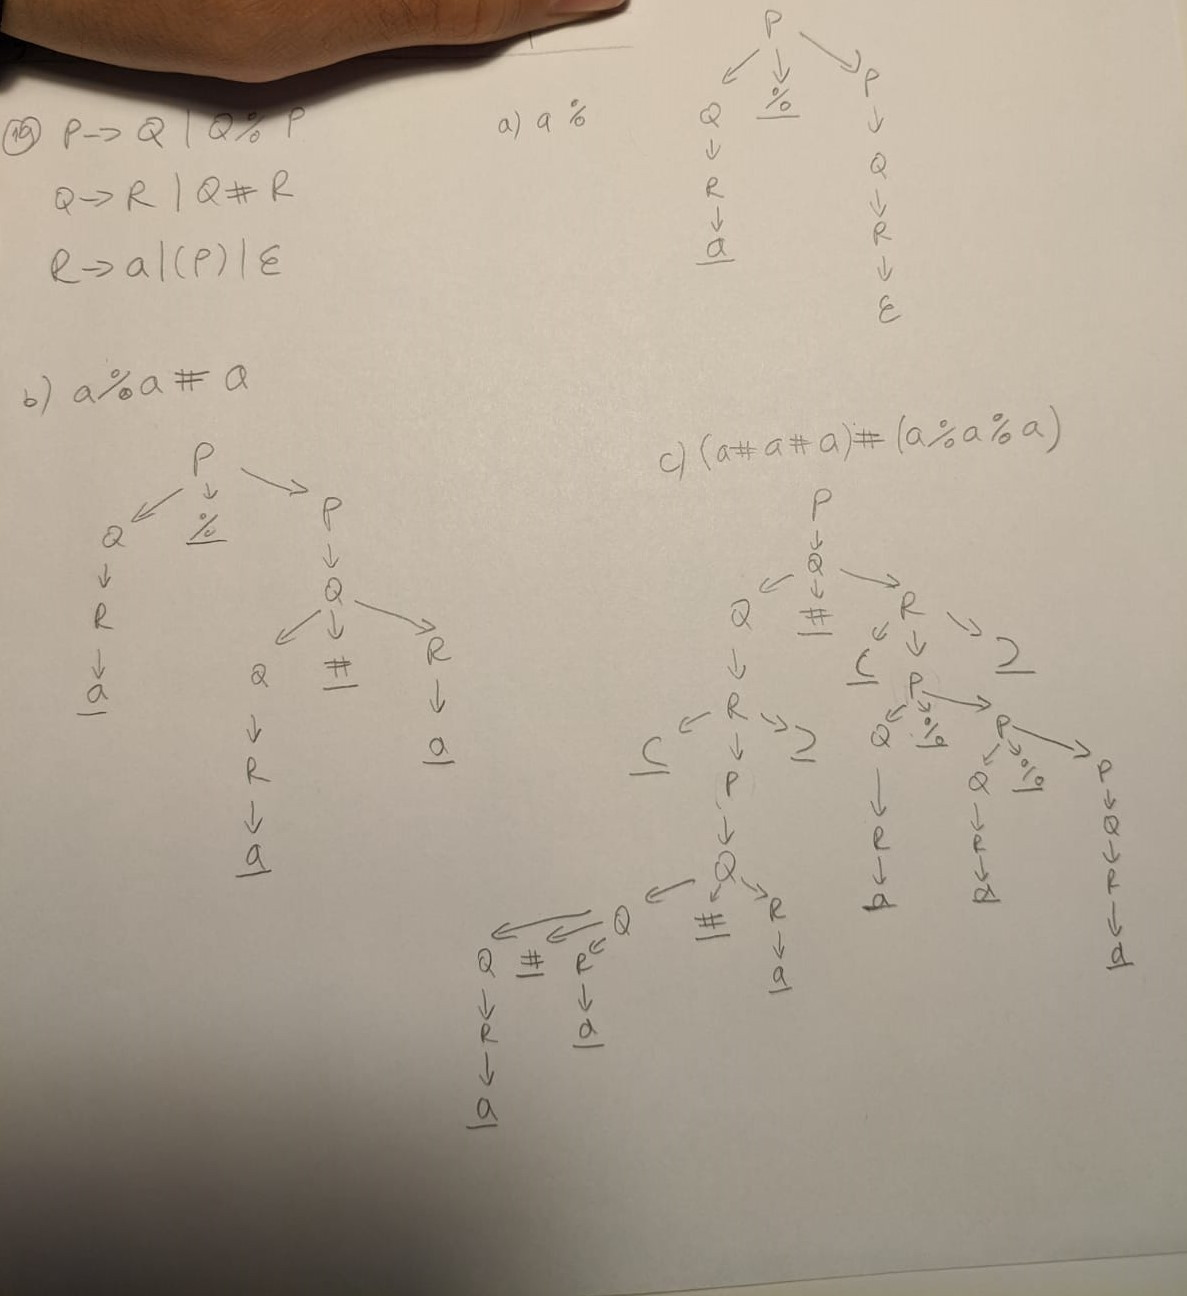 19 P -> Q | Q % P
Q -> R | Q # R
R -> a | (P) | ε
a) a %
P
Q % P
R Q
a R
ε
b) a % a # a
P
Q % P
R Q
a Q # R
R a
a
c) (a # a # a) # (a % a % a)
P
Q
Q # R
R ( P )
( P ) Q % P
Q R Q % P
Q # R a R Q
Q # R a a R
R a a
a